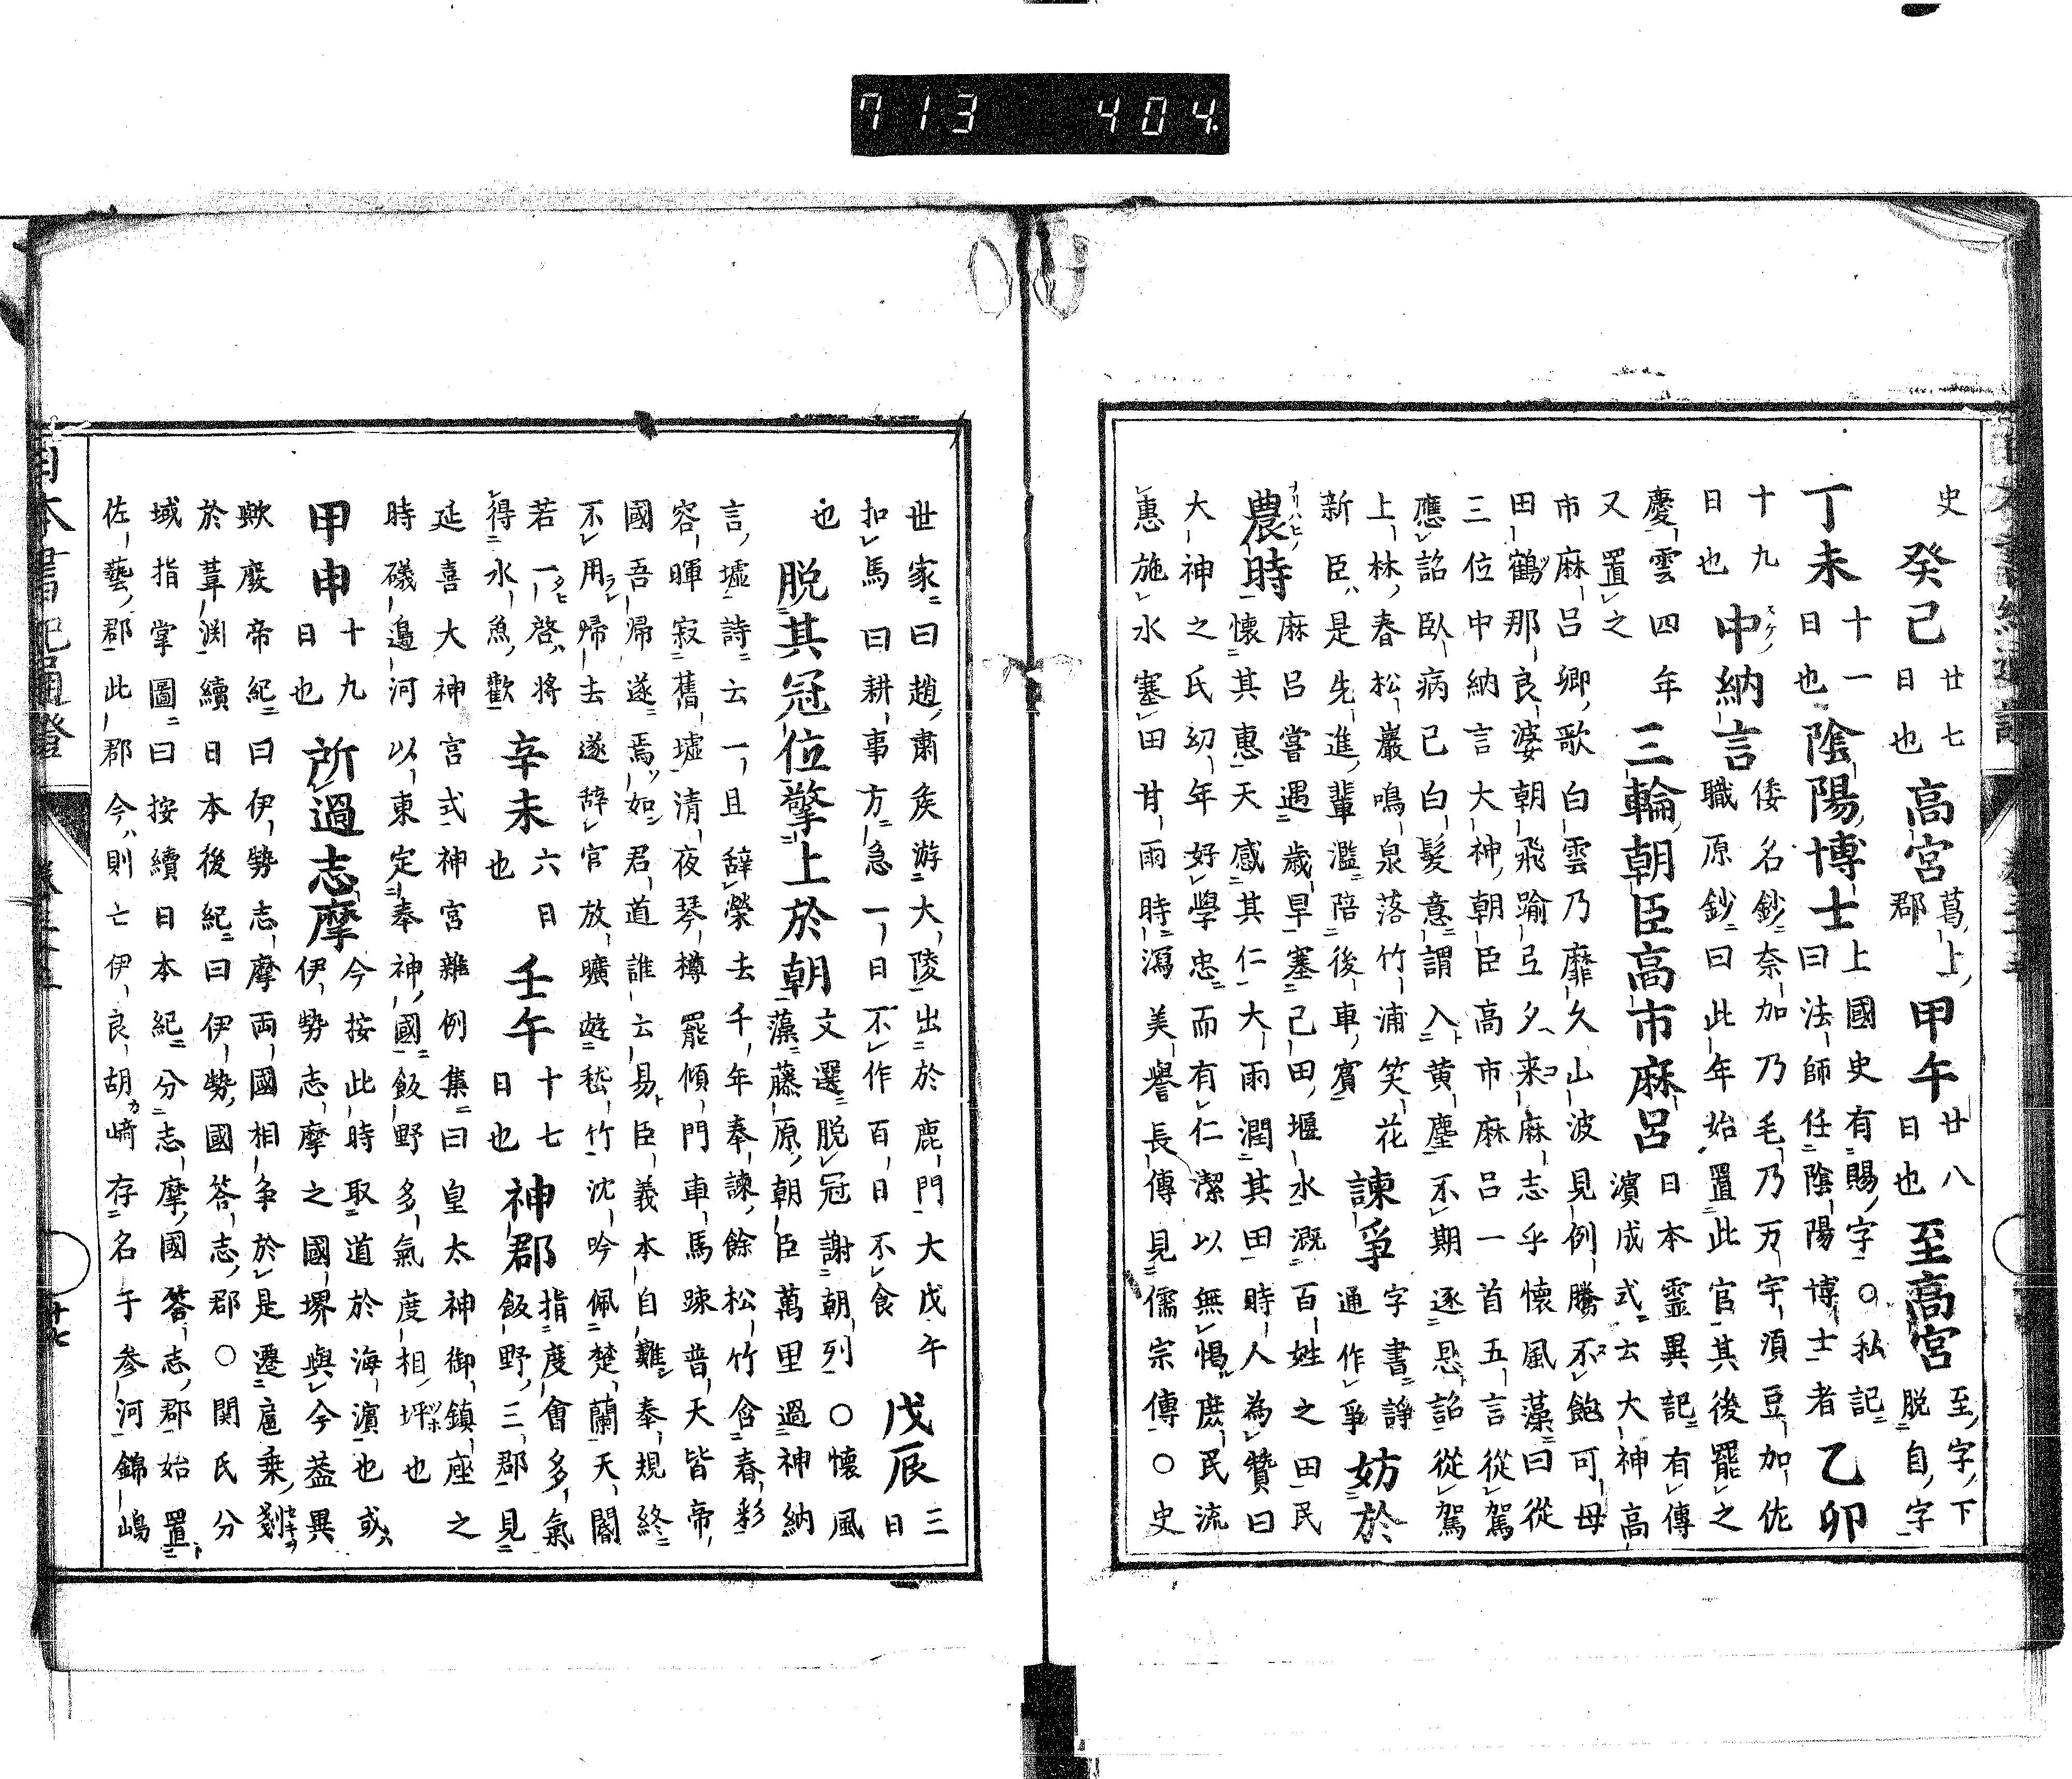 史
癸己
廿七
日也
高宮
葛上
郡
甲午
廿八
日也
至高宮
至字下
脱自字
丁未
十一
日也
陰陽博士
上國史有賜字○私記
曰法師任陰陽博士者
乙卯
十九
日也
中納言
倭名鈔奈加乃毛乃万宇須豆加佐
職原鈔曰此年始置此官其後罷之
慶雲四年
又置之
三輪朝臣高市麻呂
日本霊異記有傳
濱成式云大神高
市麻呂卿歌白雲乃靡久山波見例騰不飽可母
田鶴那良婆朝飛踰弖夕来麻志乎懐風藻曰從
三位中納言大神朝臣高市麻呂一首五言從駕
應詔臥病已白髮意謂入黄塵不期逐恩詔從駕
上林春松巖鳴泉落竹浦笑花
新臣是先進輩濫陪後車賓
諫爭
字書諍
通作爭
妨於
農時
麻呂嘗遇歳旱塞己田堰水漑百姓之田民
懐其惠天感其仁大雨潤其田時人為贊曰
大神之氏幼年好學忠而有仁潔以無愓庶民流
惠施水塞田甘雨時瀉美譽長傳見儒宗傳○史
世家曰趙肅矦游大陵出於鹿門大戊午
扣馬曰耕事方急一日不作百日不食
戊辰
三
日
也
脱其冠位擎上於朝
文選脱冠謝朝列○懷風
藻藤原朝臣萬里過神納
言墟詩云一旦辞榮去千年奉諫餘松竹含春彩
容暉寂舊墟清夜琴樽罷傾門車馬踈普天皆帝
國吾歸遂焉如君道誰云易臣義本自難奉規終
不用歸去遂辞官放曠遊嵆竹沈吟佩楚蘭天閽
若一啓將
得水魚歡
辛未
六日
也
壬午
十七
日也
神郡
指度會多氣
飯野三郡見
延喜大神宮式神宮雜例集曰皇太神御鎮座之
時礒邉河以東定奉神國飯野多氣度相坪也
甲申
十九
日也
所過志摩
今按此時取道於海濱也或
伊勢志摩之國堺與今葢異
歟廢帝紀曰伊勢志摩両國相争於是遷扈乗剗
於葦渕續日本後紀曰伊勢國答志郡○関氏分
域指掌圖曰按續日本紀分志摩國答志郡始置
佐藝郡此郡今則亡伊良胡﨑存名于参河錦嶋
713 404